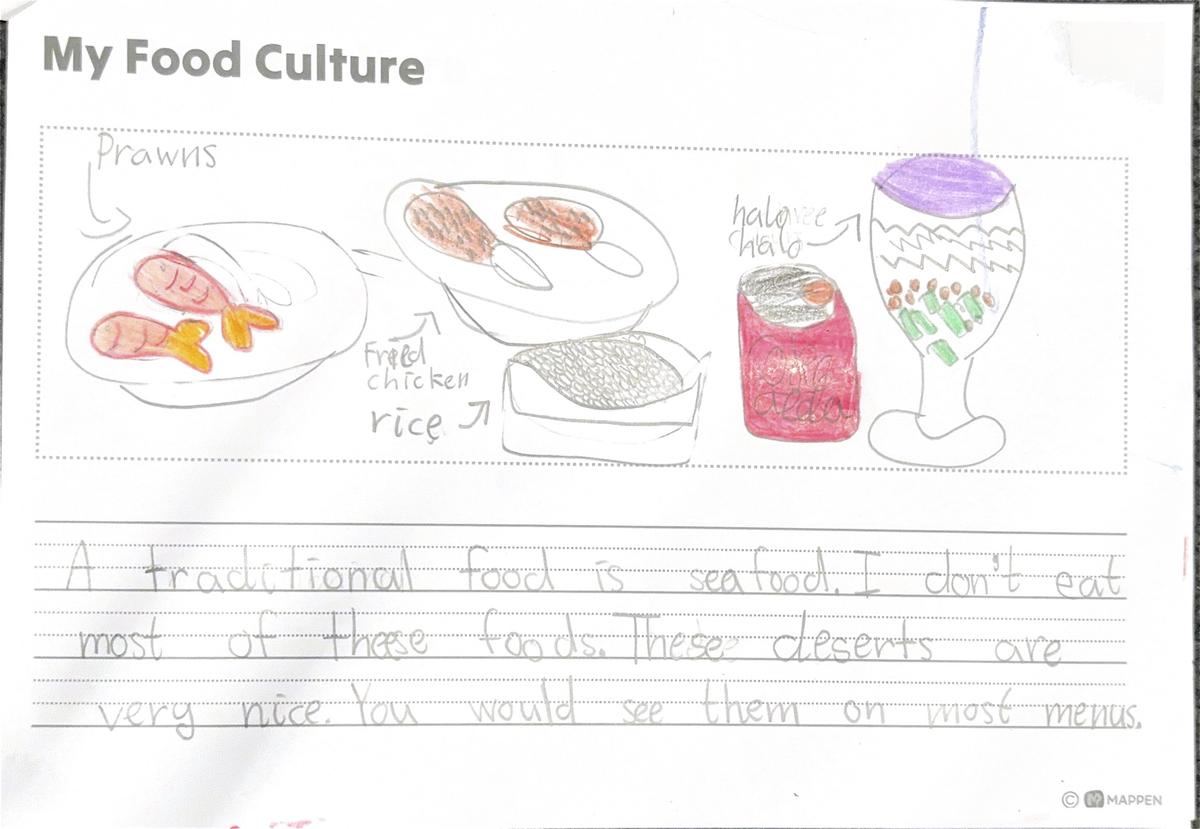 My Food Culture
Prawns
Fried
chicken
rice
halo
halo
A traditional food is seafood. I don't eat
most of these foods. These deserts are
very nice. You would see them on most menus.
© MAPPEN